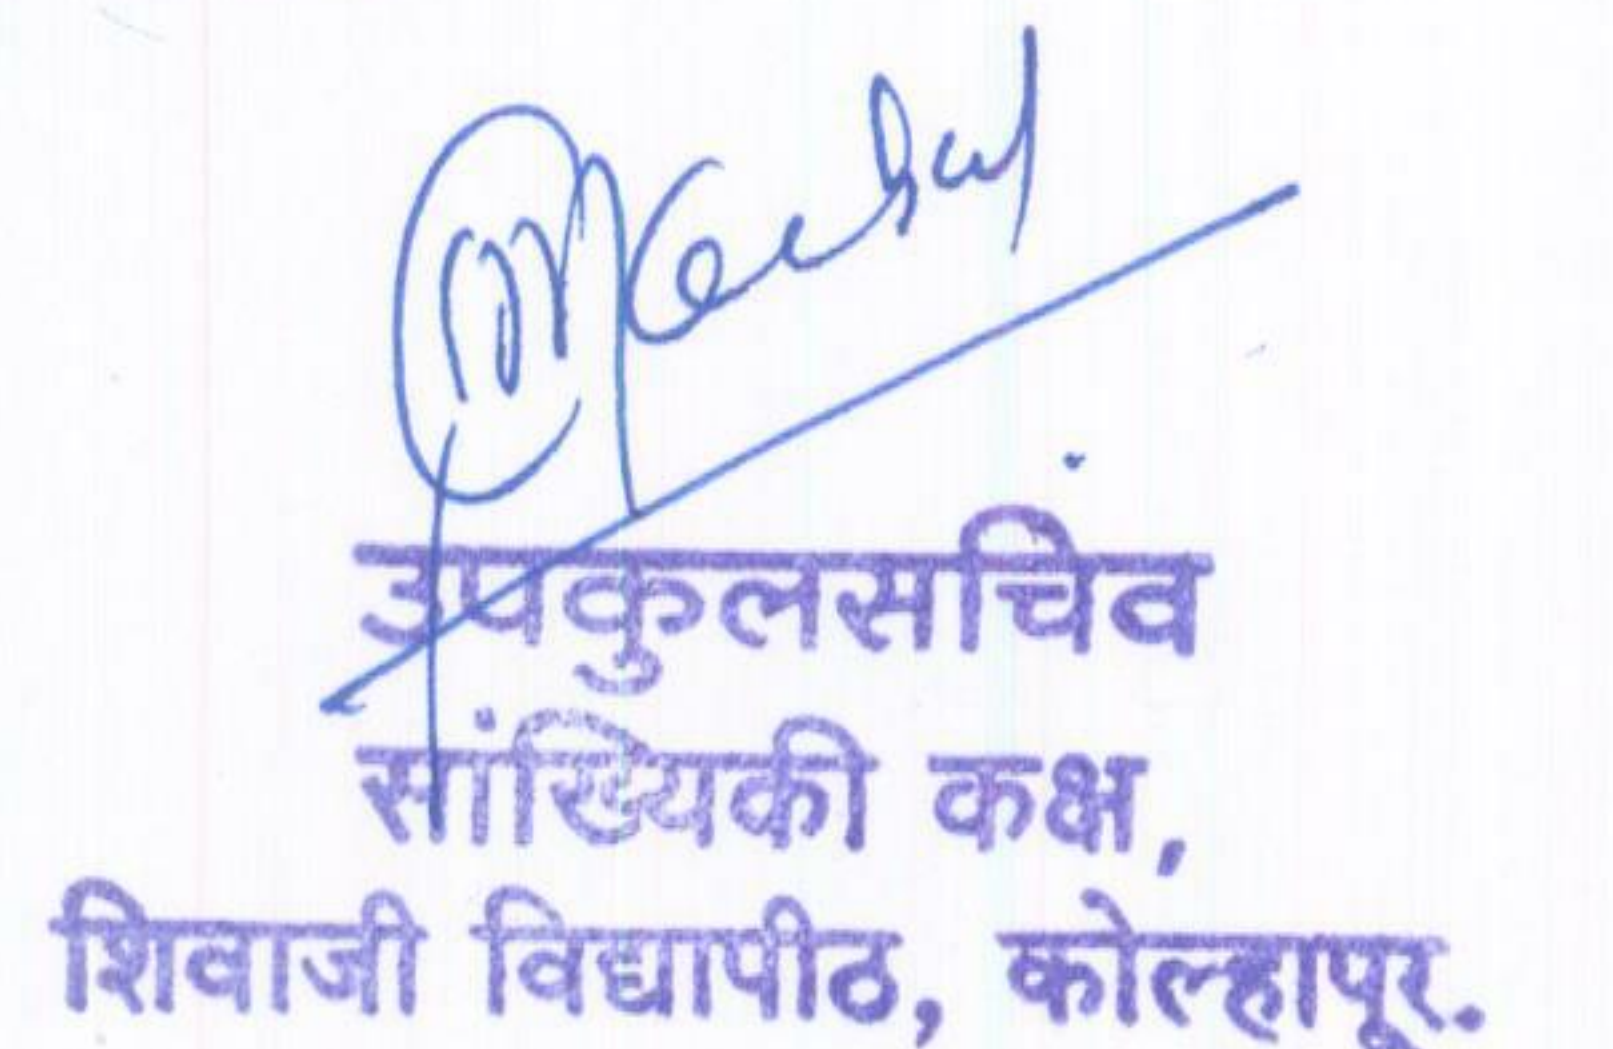 उपकुलसचिव
सांख्यिकी कक्ष,
शिवाजी विद्यापीठ, कोल्हापूर.